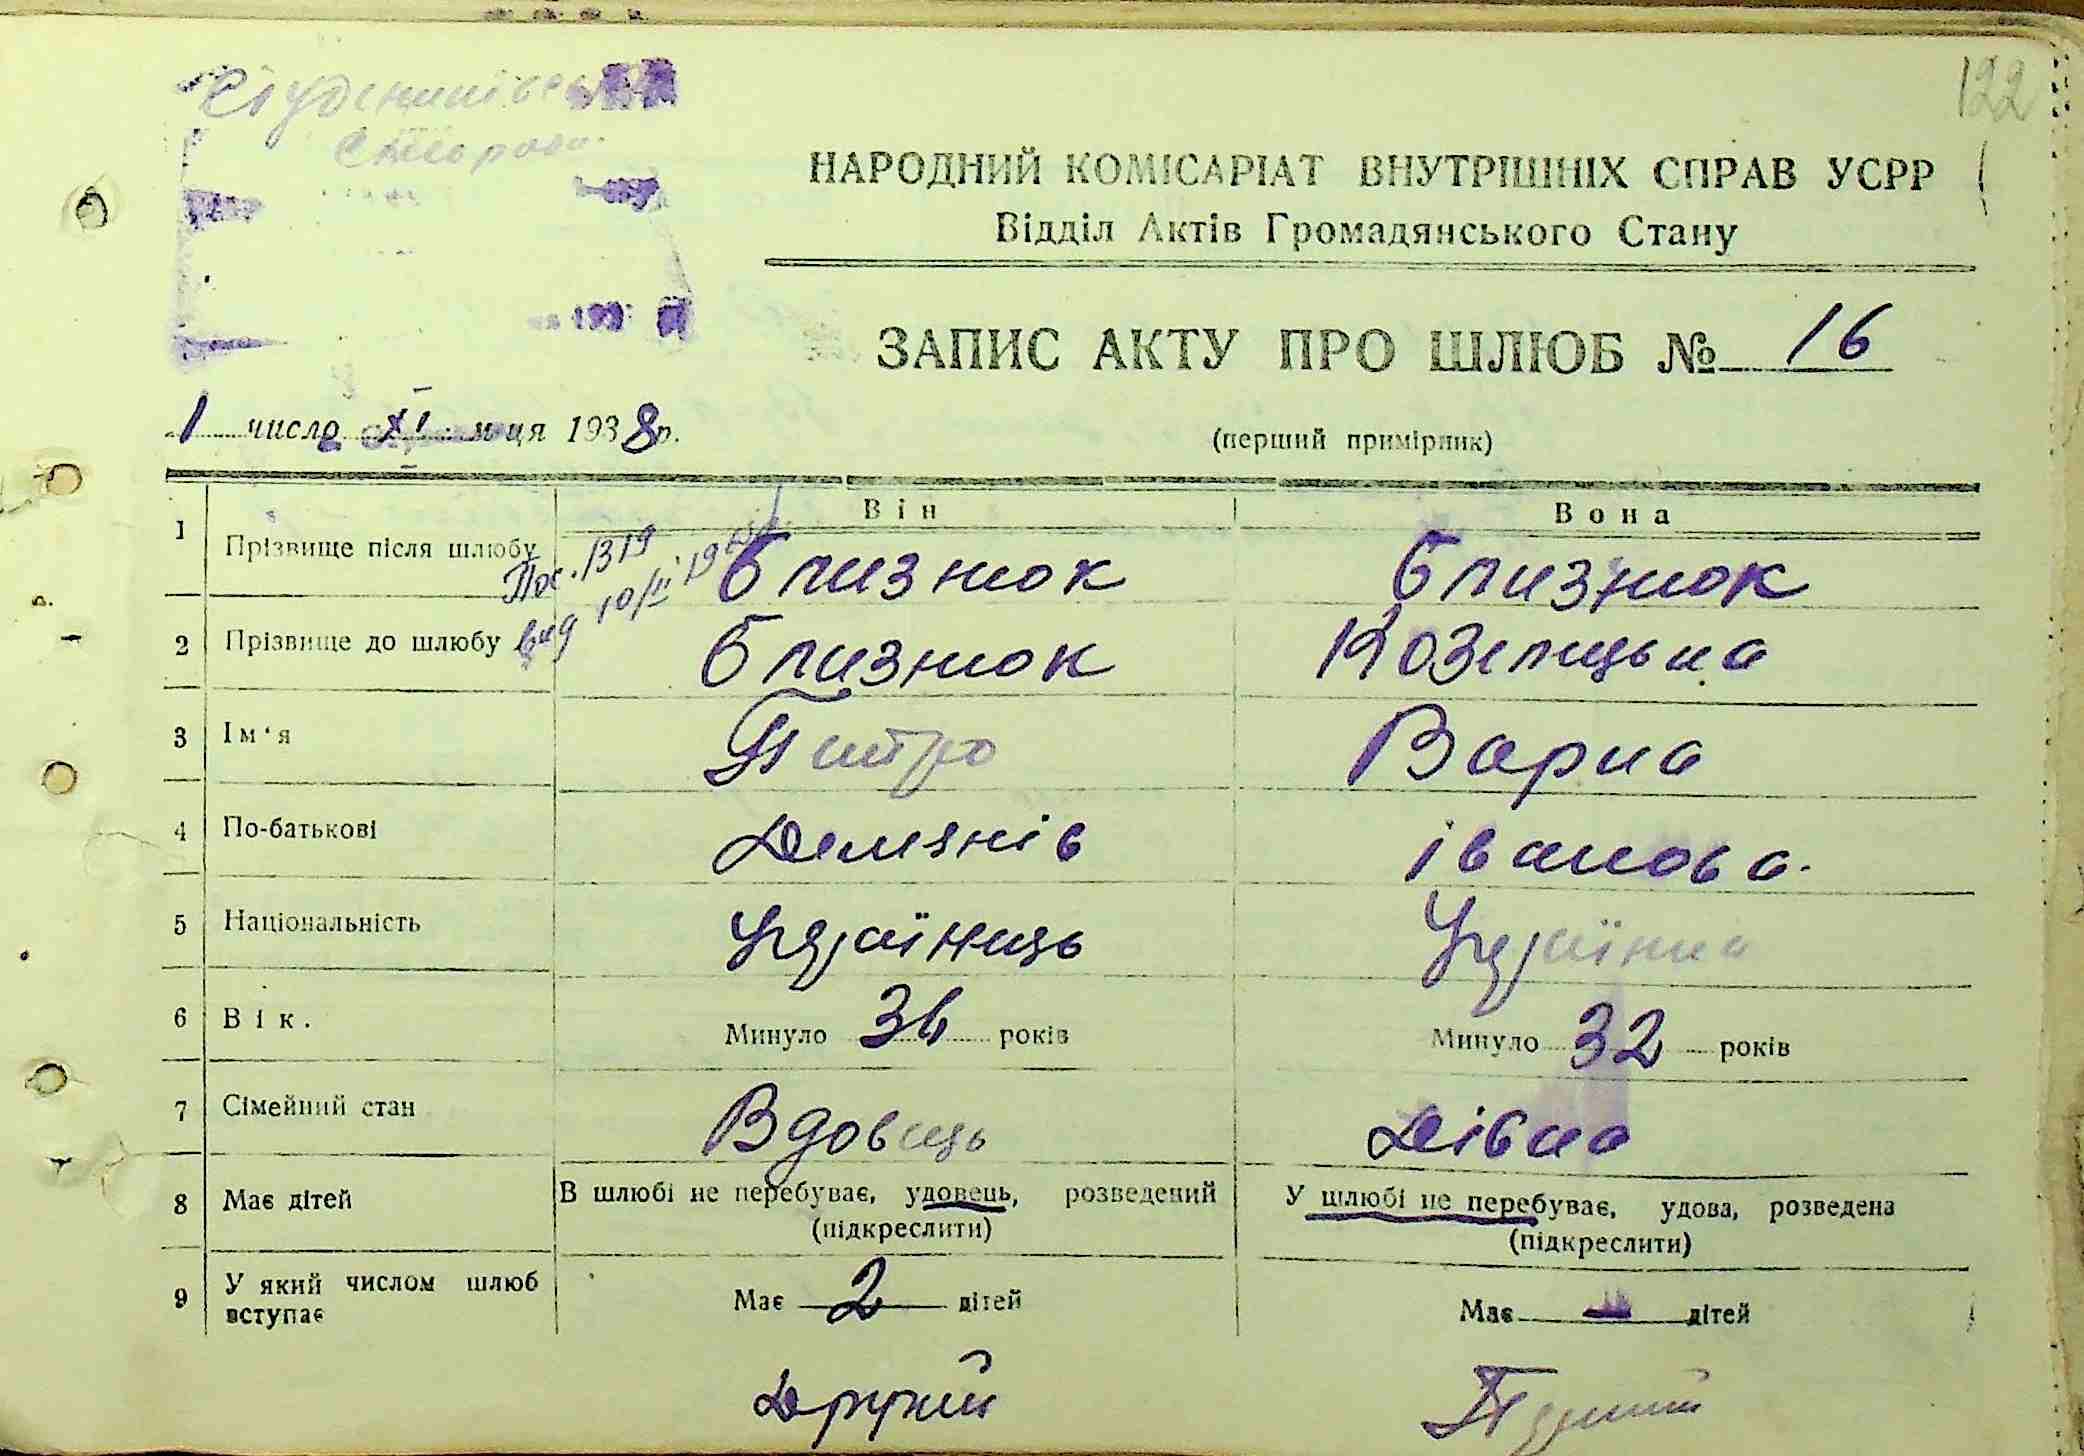 122
НАРОДНИЙ КОМІСАРІАТ ВНУТРІШНІХ СПРАВ УСРР
Відділ Актів Громадянського Стану
ЗАПИС АКТУ ПРО ШЛЮБ № 16
1 число XI м-ця 1938р.
(перший примірник)
Він Вона
1 Прізвище після шлюбу Близнюк Близнюк
2 Прізвище до шлюбу Близнюк Козелицька
3 Ім'я Питро Варка
4 По-батькові Демянів Іванова.
5 Національність Українець Українка
6 Вік. Минуло 36 років Минуло 32 років
7 Сімейний стан Вдовець Дівка
8 Має дітей В шлюбі не перебуває, удовець, розведений У шлюбі не перебуває, удова, розведена
(підкреслити) (підкреслити)
9 У який числом шлюб вступає Має 2 дітей Має — дітей
Другий Перший